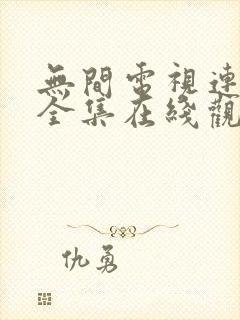 無間電視連
全集在綫觀
仇勇